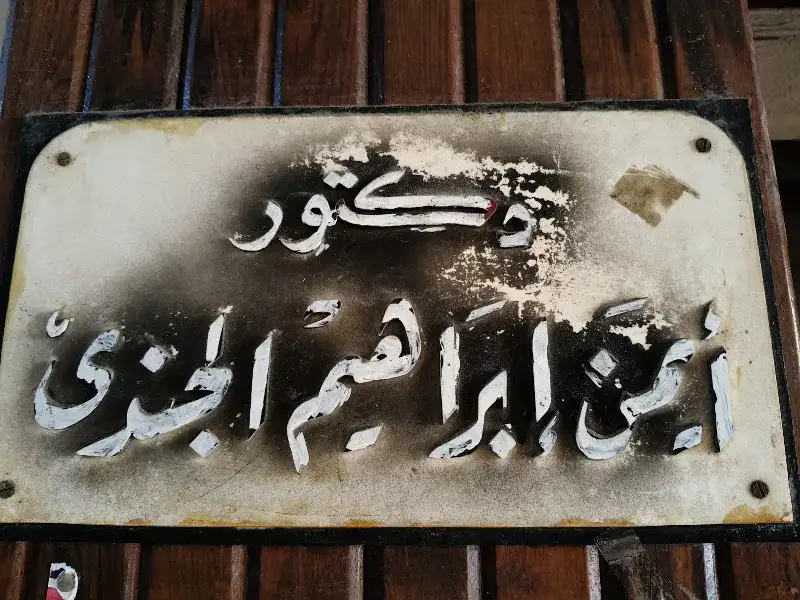 دكتور
أيمن إبراهيم الجندى